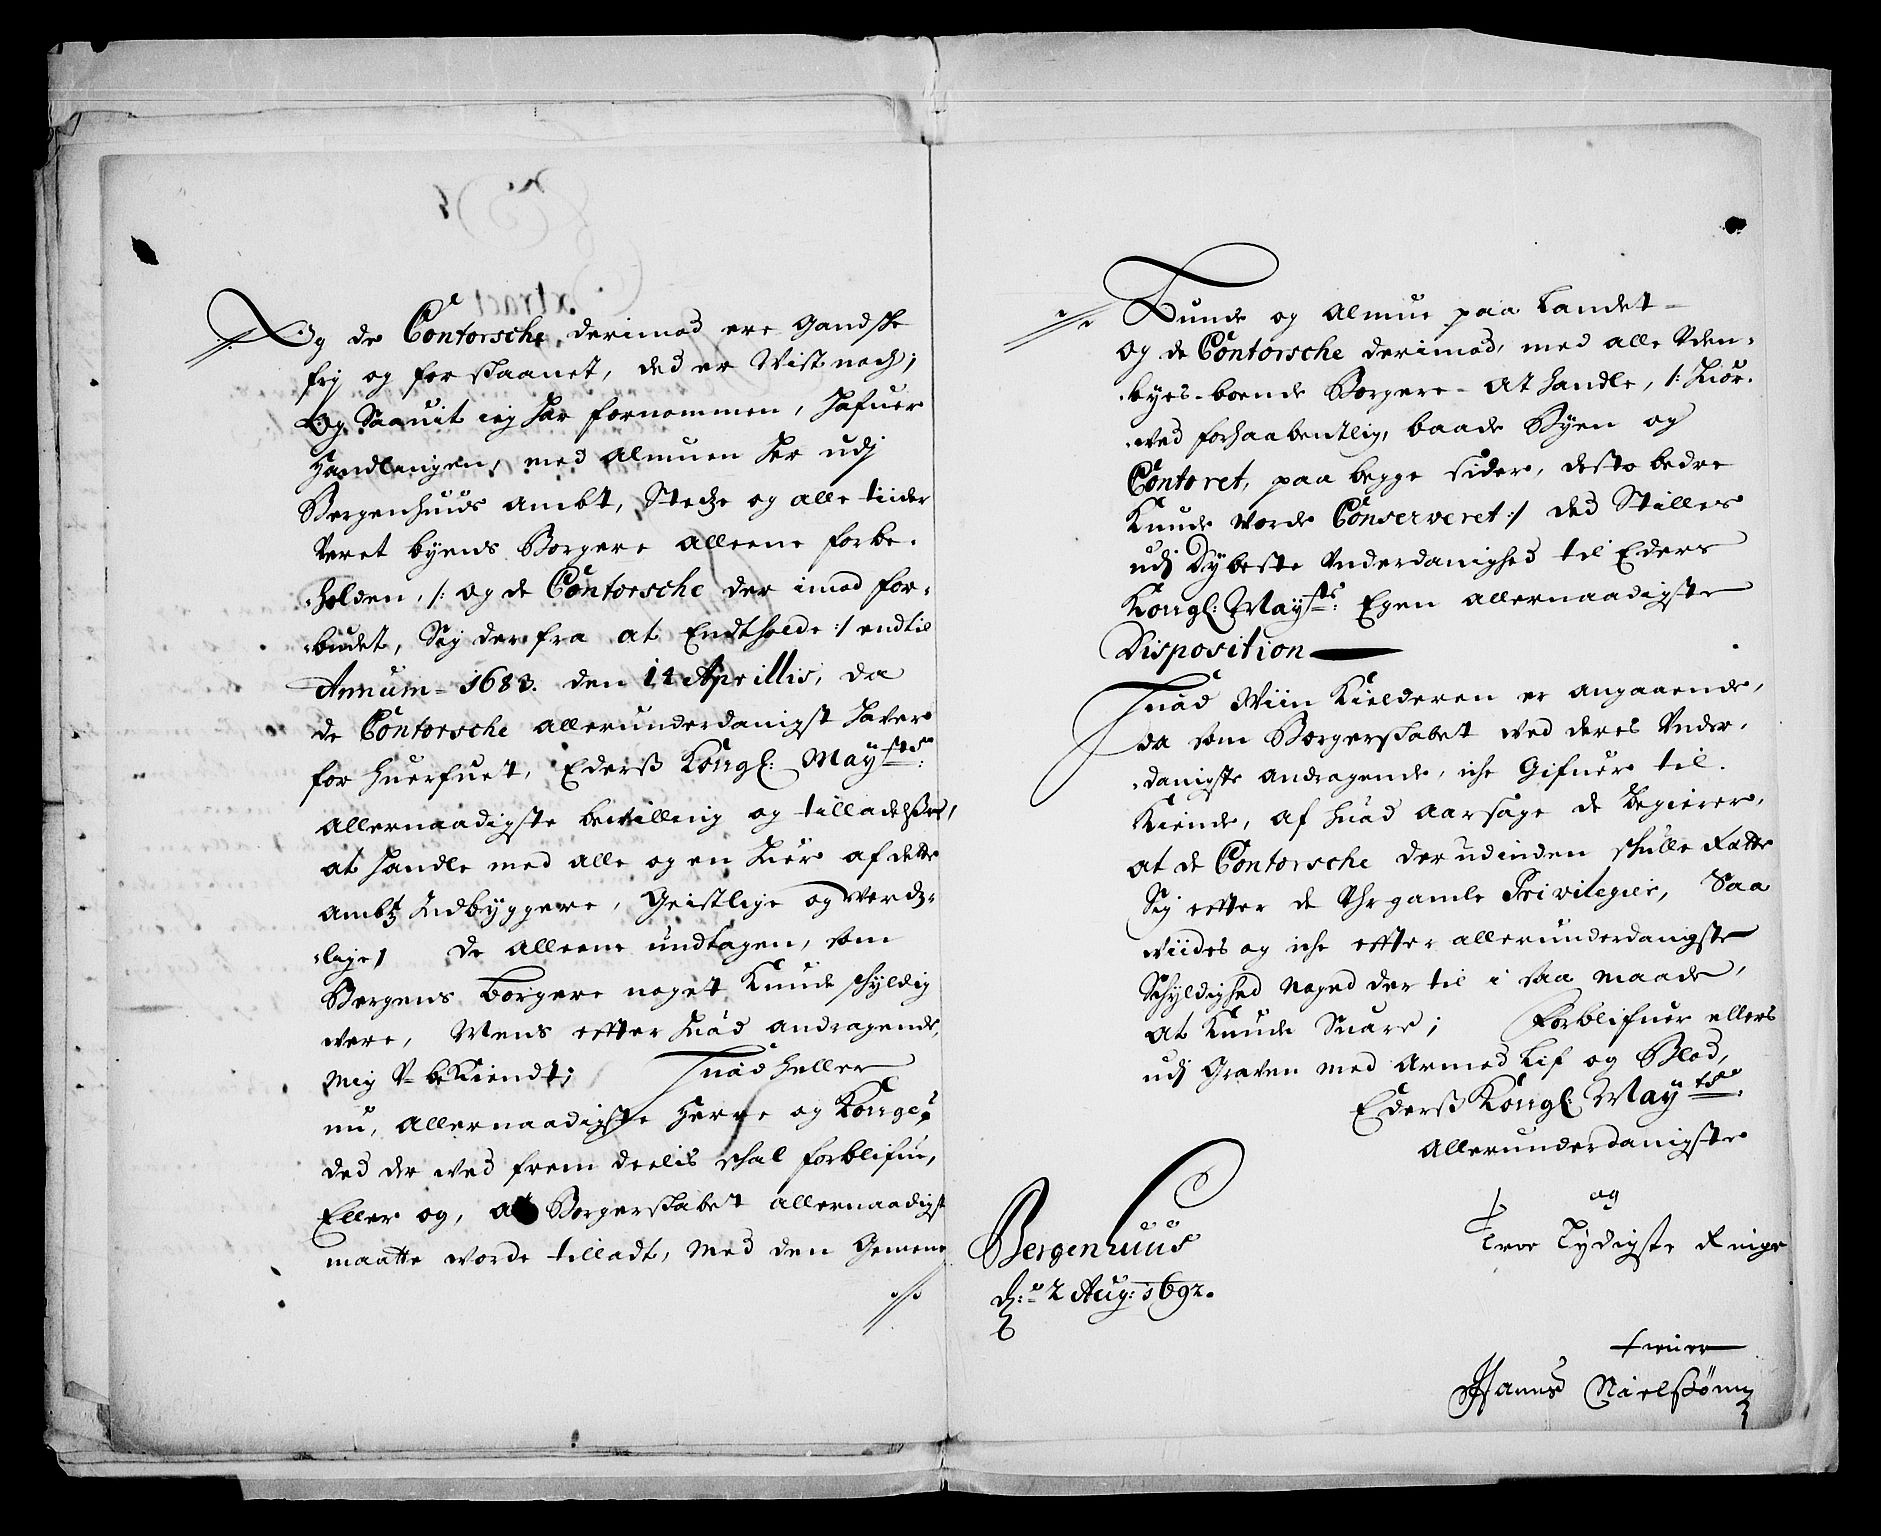 Og de Contorsche derimod ere Gandske
frij og forskaanet, ded er Vist noch;
Og Saauit ieg har fornommen, hafuer
Handlingen, med Almuen her udj
Bergenhuus Ambt, Stedze og alle tiider
Veret byens Borgere alleene forbe-
-holden, /: og de Contorsche der imod for-
-budet, Sig der fra at Endtholde :/ endtil
Annum - 1683. den 14 Aprillis, da
de Contorsche allerunderdanigst hafver
for huerfuet, Ederß Kongl: Mayts:
Allernaadigste bevilling og tilladelße,
at handle med alle og en huer af dette
Ambtz Indbyggere, Geistlige og Verdz-
-lige, de alleene undtagen, som
Bergens Borgere noget kunde schyldig
vere, Mens efter huad andragende,
mig V-bekiendt; Huad heller
nu, Allernaadigste Herre og Konge,
ded der ved frem deelis schal forblifue,
Eller og, at Borgerskabet allernaadigst
maatte worde tilladt, med den Gemene
Bunde og Almue paa Landet
og de Contorsche derimod, med alle Uden-
-byes-boende Borgere - at handle, /: huor-
-ved forhaabentlig, baade Byen og
Contoret, paa begge sider, desto bedre
kunde vorde Conserveret :/ ded Stilles
udj Dybeste Underdanighed til Eders
Kongl: Mayts: Egen allernaadigste
Disposition
Huad Wiin Kielderen er angaaende,
da som Borgerskabet ved deres Under-
-danigste andragende, iche Gifuer til-
kiende, af huad aarsage de begierer,
at de Contorsche derudinden skulle Rette
Sig efter de Uhrgamle Privilegier, Saa
viides og iche efter allerunderdanigste
Schyldighed noged der til i saa maade,
at kunde Suare; Forblifuer ellers
udj Graven med Armod Lif og Blod,
Ederß Kongl: Mayts:
Allerunderdanigste
og
Troe Pligtigste Ringe
tiener
Hannß Nielßönn
Bergenhuus
d: 2 Aug: 1692.